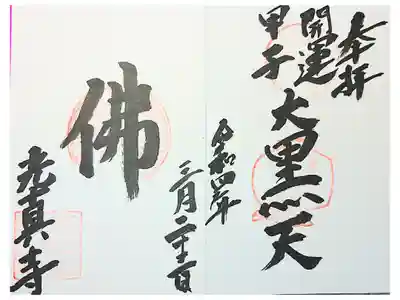 奉拝
開運
甲子
大黒天
令和四年
三月二十二日
佛
光真寺